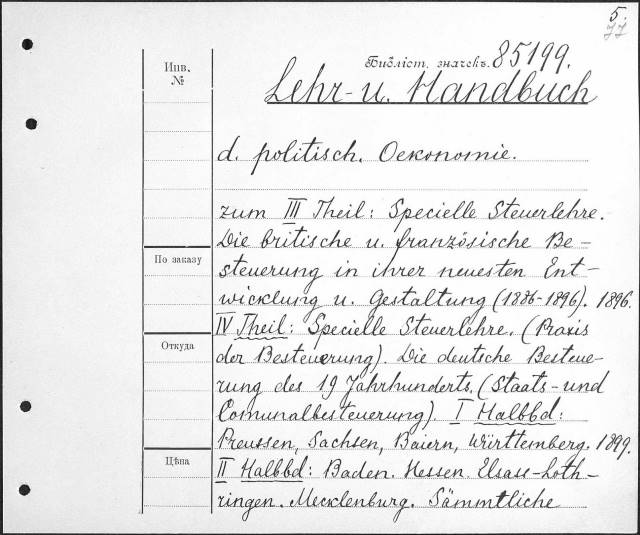 5.
77
Библіот. значекъ. 85199.
Инв.
№
Lehr- u. Handbuch
d. politisch. Oekonomie.
zum III Theil: Specielle Steuerlehre.
Die britische u. französische Be-
По заказу
steuerung in ihrer neuesten Ent-
wicklung u. Gestaltung (1886-1896). 1896.
IV Theil: Specielle Steuerlehre. (Praxis
Откуда
der Besteuerung). Die deutsche Besteue-
rung des 19 Jahrhunderts. (Staats- und
Comunalbesteuerung). I Halbbd:
Preussen, Sachsen, Baiern, Württemberg. 1899.
Цѣна
II Halbbd: Baden. Hessen. Elsass-Loth-
ringen. Mecklenburg. Sämmtliche